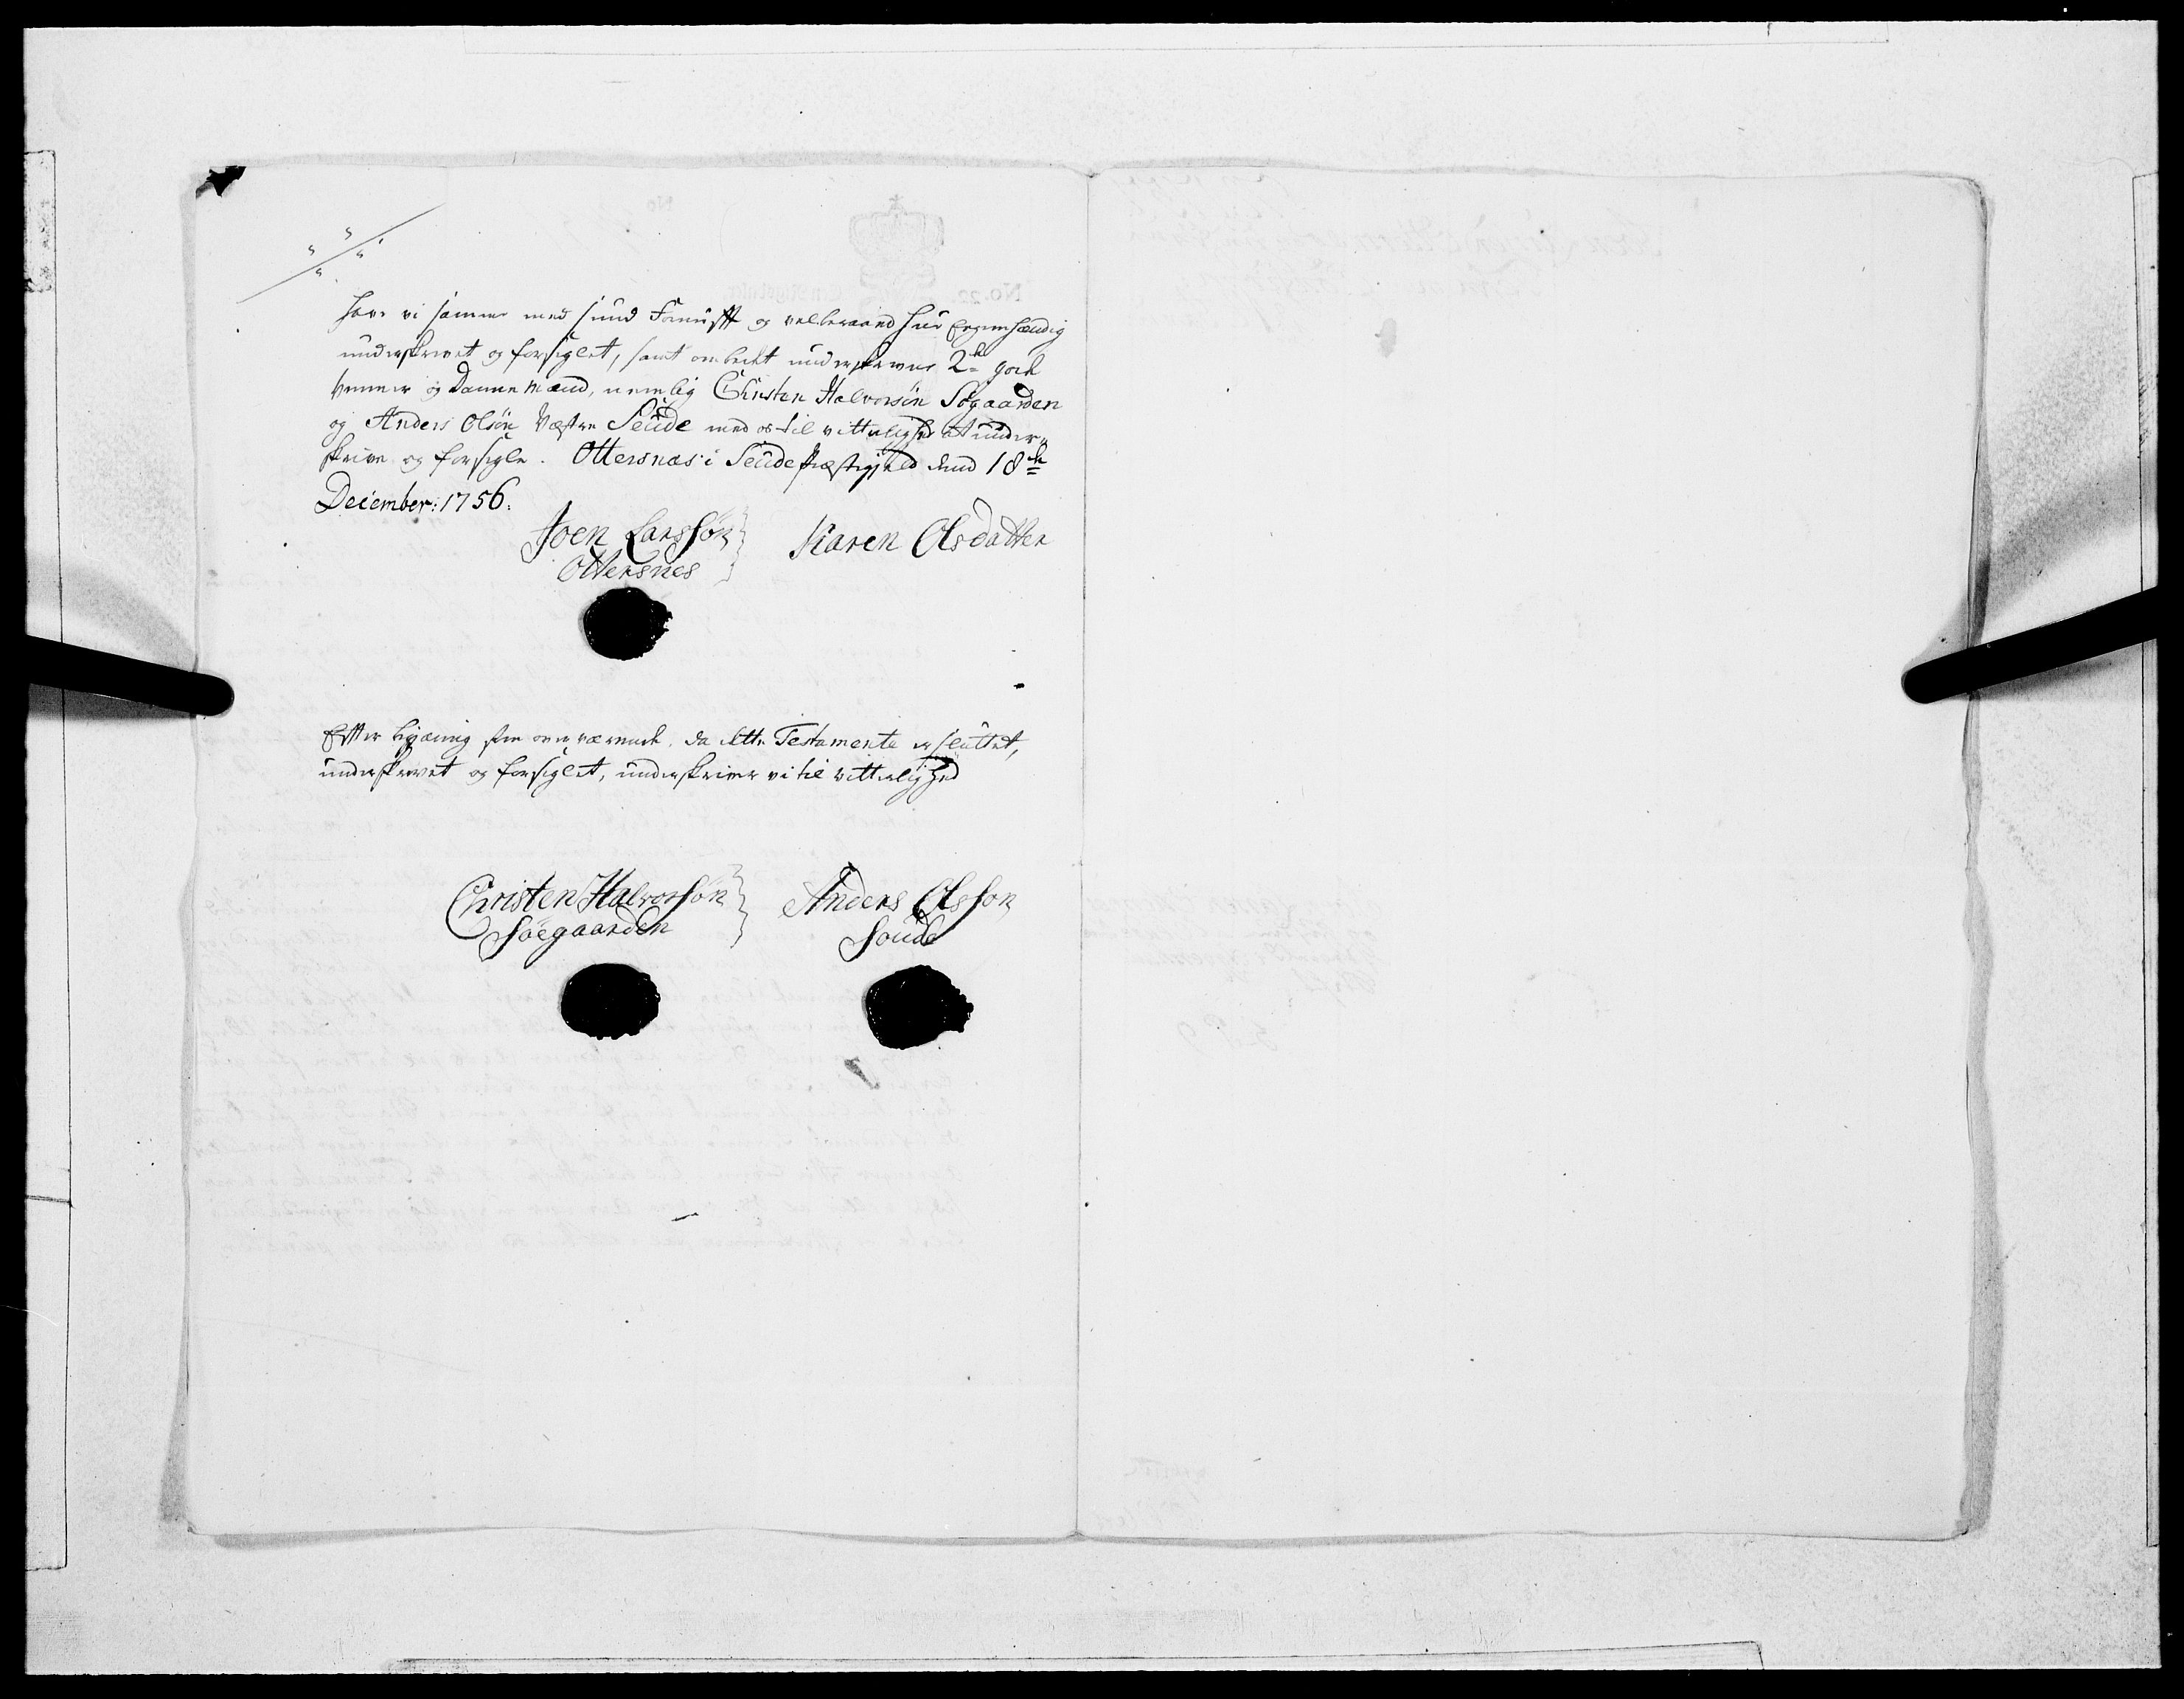 have vi samme med sund Fornufft og velberaand hue Egenhændig
underskrevet og forsiglet, samt ombedet underskrevne 2de gode
venner og Dannemænd, nemlig Christen Halvorsøn Søgaarden
og Anders Olsøn Væstre Seude med os til vitterlighed at under-
skrive og forsigle. Ottersnæs i Seude Præstegield dend 18de
December: 1756.
Joen Larssøn Karen Olsdatter
Ottersnes
Efter begiæring som overværende, da dette Testamente er sluttet,
underskrevet og forsiglet, underskriver vi til vitterlighed
Christen Halvorssøn Anders Olsson
Søegaarden Soude